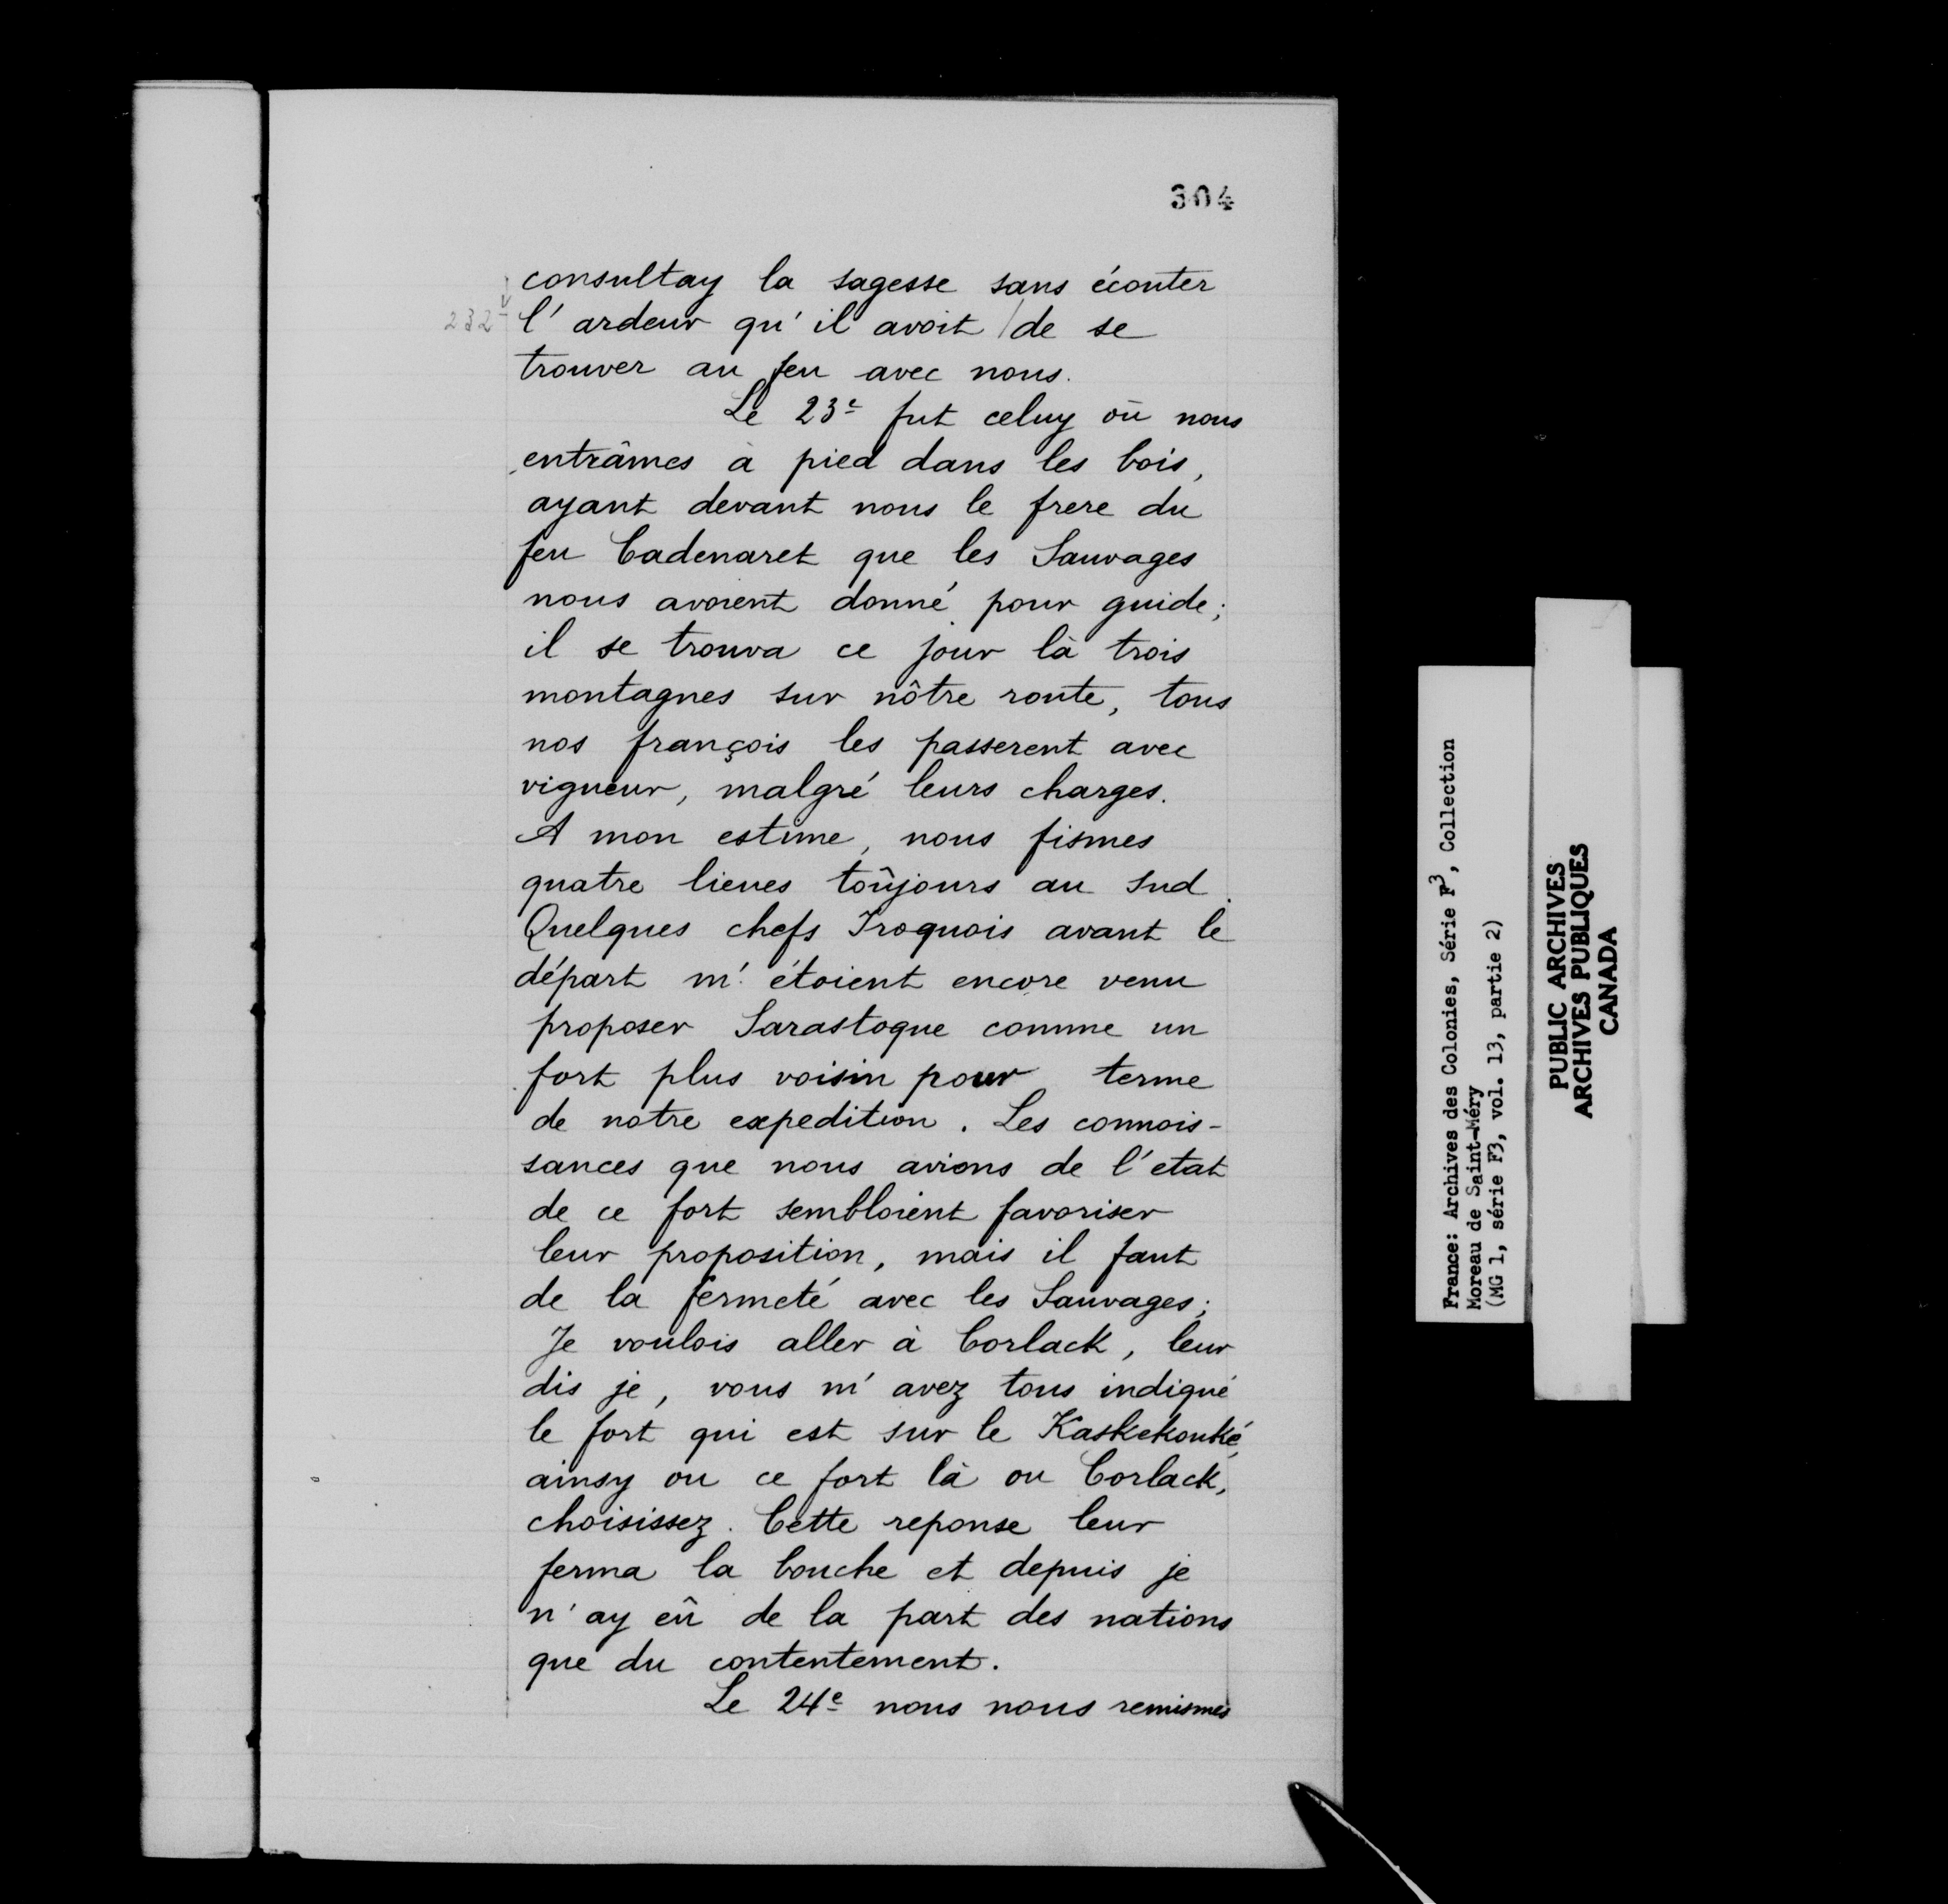 304
consultay la sagesse sans écouter
232 l'ardeur qu'il avoit / de se
trouver au feu avec nous.
Le 23e fut celuy où nous
entrâmes à pied dans les bois,
ayant devant nous le frere du
feu Cadenaret que les Sauvages
nous avoient donné pour guide;
il se trouva ce jour là trois
montagnes sur nôtre route, tous
nos françois les passerent avec
vigueur, malgré leurs charges.
A mon estime, nous fismes
quatre lieues toûjours au sud.
Quelques chefs Iroquois avant le
départ m'étoient encore venu
proposer Sarastogue comme un
fort plus voisin pour terme
de notre expedition. Les connois-
sances que nous avions de l'etat
de ce fort sembloient favoriser
leur proposition, mais il faut
de la fermeté avec les Sauvages;
Je voulois aller à Corlack, leur
dis je, vous m'avez tous indiqué
le fort qui est sur le Kaskekouké,
ainsy ou ce fort là ou Corlack,
choisissez. Cette reponse leur
ferma la bouche et depuis je
n'ay eû de la part des nations
que du contentement.
Le 24e nous nous remismes
France: Archives des Colonies, Série F3, Collection
Moreau de Saint-Méry
(MG 1, série F3, vol. 13, partie 2)
PUBLIC ARCHIVES
ARCHIVES PUBLIQUES
CANADA